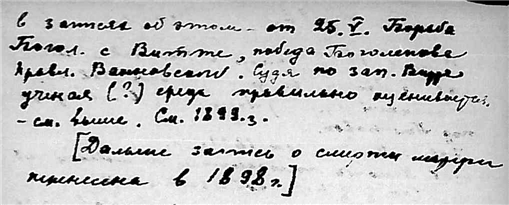 в записях об этом – от 25.V. Борьба
Богол. с Витте, победа Боголепова
Ванновский. Судя по зап. Витте
ученая (?) среда правильно оценивается
– см. выше. См. 1899 г.
[Дальше запись о смерти
перенесена в 1898 г.]